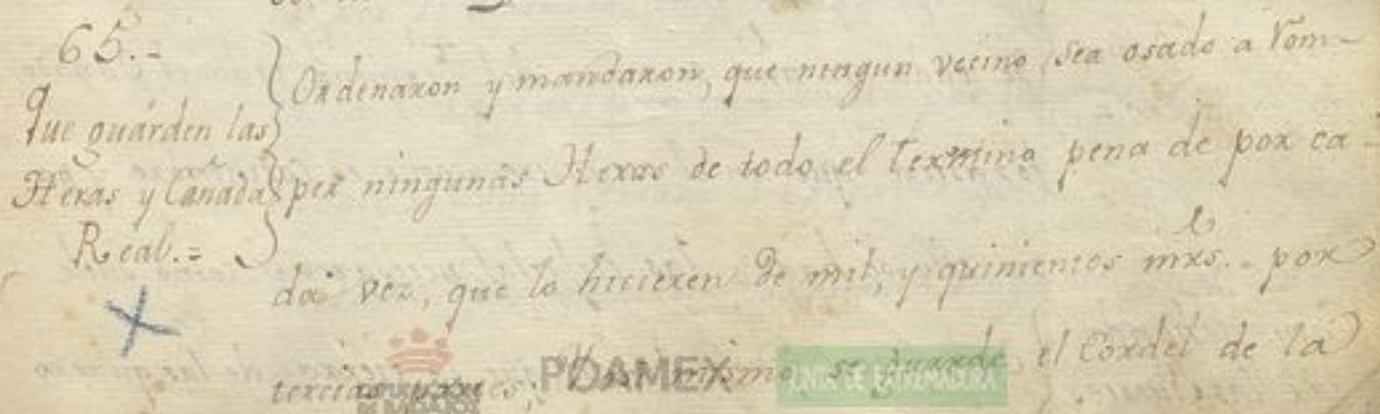 65.-
Que guárden las
Heras y Cañada
Real.=
Ordenaron y mandaron, que ningun vecino sea osado a rom-
per ningunas Heras de todo el termino pena de por ca-
da vez, que lo hicieren de mil, y quinientos mrs. por
tercias partes; y asimismo se guarde el Cordel de la
DIPUTACIÓN
DE BADAJOZ
PDAMEX
JUNTA DE EXTREMADURA